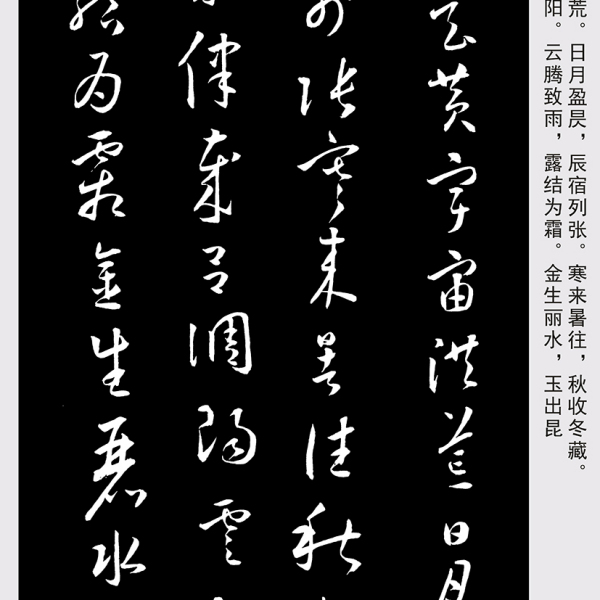 荒。日月盈昃，辰宿列张。寒来暑往，秋收冬藏。
阳。云腾致雨，露结为霜。金生丽水，玉出昆
玄黄宇宙洪荒日月
列張寒来暑往秋
律歲呂調陽雲
結為霜金生麗水